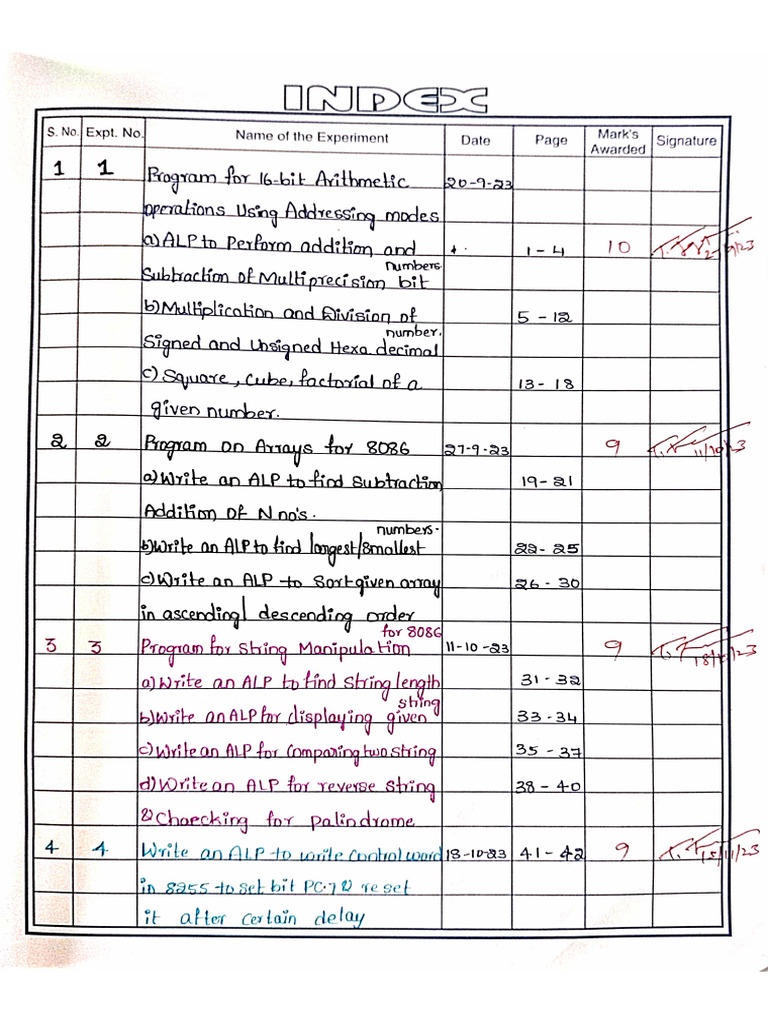 INDEX
S. No. Expt. No. Name of the Experiment Date Page Mark's Awarded Signature
1 1 Program for 16-bit Arithmetic 20-9-23
operations Using Addressing modes
a) ALP to Perform addition and 1-4 10
Subtraction of Multiprecision bit numbers
b) Multiplication and Division of 5-12
Signed and Unsigned Hexa decimal number.
c) Square, Cube, factorial of a 13-18
given number.
2 2 Program on Arrays for 8086 27-9-23 9
a) Write an ALP to find Subtraction 19-21
Addition of N no's.
b) Write an ALP to find longest/smallest numbers. 22-25
c) Write an ALP to Sort given array 26-30
in ascending/ descending order
3 3 Program for String Manipulation for 8086 11-10-23 9
a) Write an ALP to find String length 31-32
b) Write an ALP for displaying given string 33-34
c) Write an ALP for Comparing two string 35-37
d) Write an ALP for reverse string 38-40
& Chaecking for palindrome
4 4 Write an ALP to write Control word 18-10-23 41-42 9
in 8255 to set bit PC-7 & reset
it after certain delay